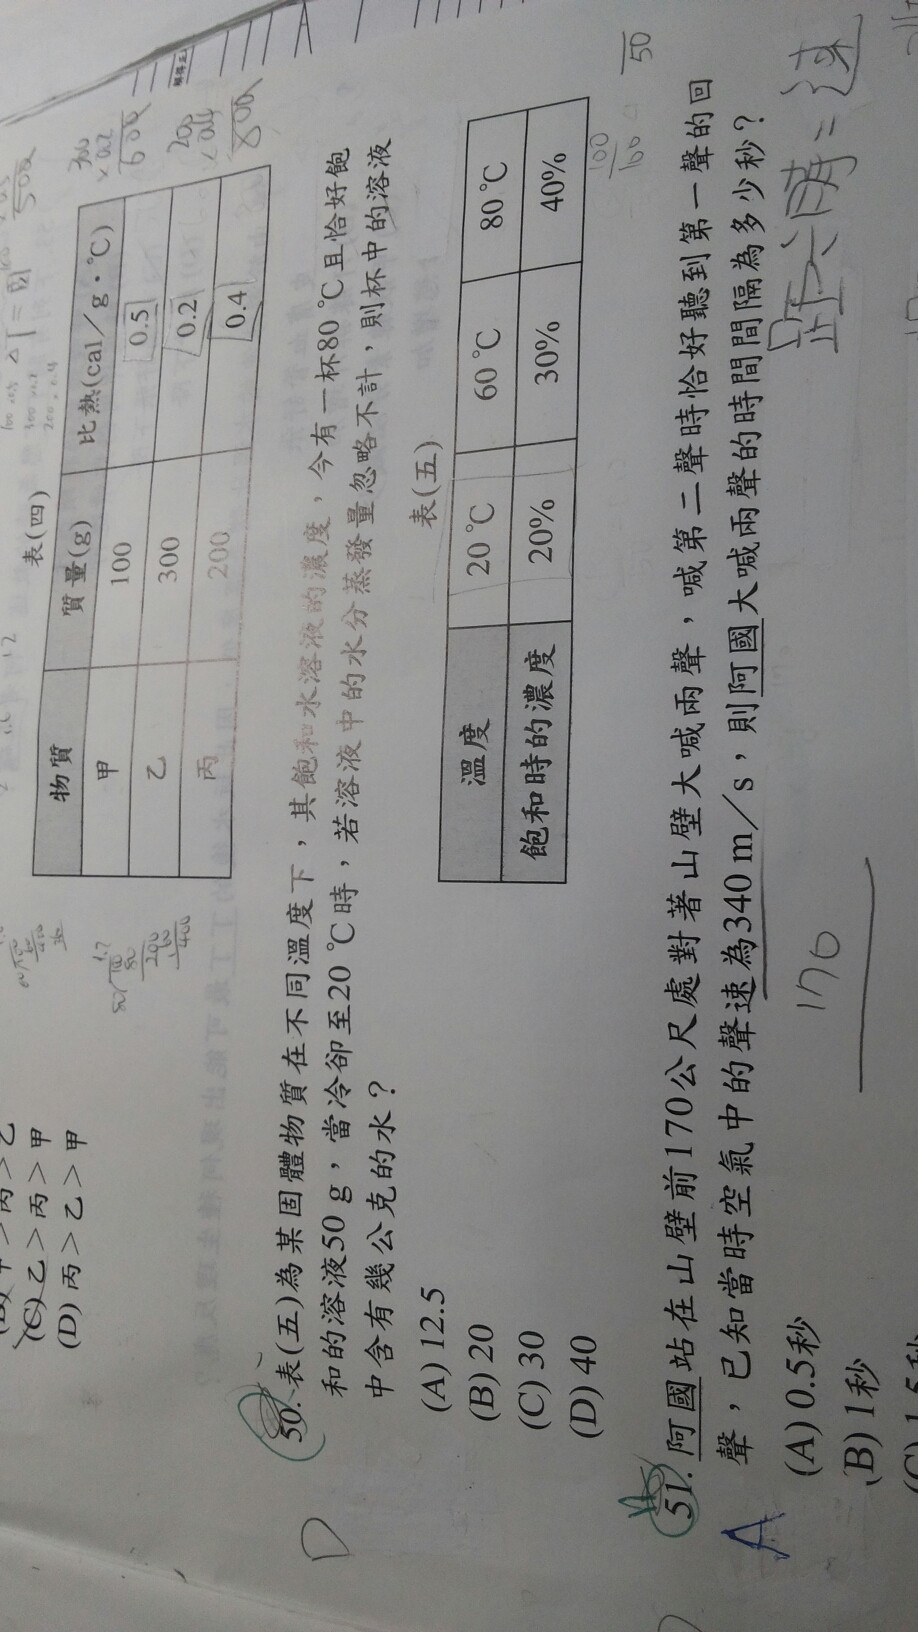 表(四)
物質 質量(g) 比熱(cal／g．℃)
甲 100 0.5
乙 300 0.2
丙 200 0.4
300
×0.2
600
800
(C)乙＞丙＞甲
(D)丙＞乙＞甲
D
50.表(五)為某固體物質在不同溫度下，其飽和水溶液的濃度，今有一杯80℃且恰好飽
和的溶液50 g，當冷卻至20℃時，若溶液中的水分蒸發量忽略不計，則杯中的溶液
中含有幾公克的水？
(A) 12.5
(B) 20
(C) 30
(D) 40
表(五)
溫度 20℃ 60℃ 80℃
飽和時的濃度 20% 30% 40%
100
100
50
A
51.阿國站在山壁前170公尺處對著山壁大喊兩聲，喊第二聲時恰好聽到第一聲的回
聲，已知當時空氣中的聲速為340 m／s，則阿國大喊兩聲的時間間隔為多少秒？
(A) 0.5秒
(B) 1秒
170